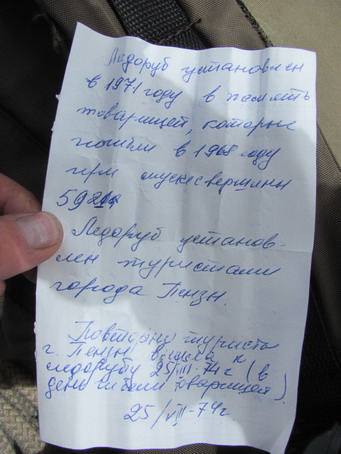 Ледоруб установлен
в 1971 году в память
товарищей, которые
погибли в 1968 году
при спуске с вершины

Ледоруб установ-
лен туристами
города Пензы.
Повторно туристы
г. Пензы вышли к
ледорубу 25/VIII-74г (в
день гибели товарищей).
25/VIII-74г